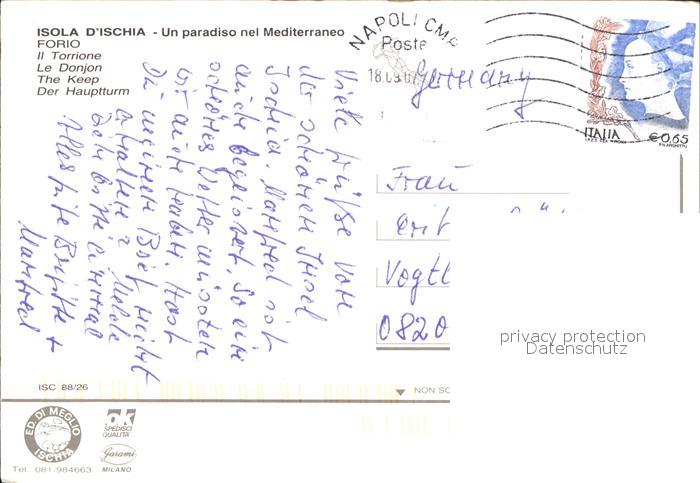 ISOLA D'ISCHIA - Un paradiso nel Mediterraneo
FORIO
Il Torrione
Le Donjon
The Keep
Der Hauptturm
NAPOLI CMP
Poste
18.09.07
Germany
ITALIA
€0,65
Viele Grüße von
der schönen Insel
Ischia. Manfred ist
auch begeistert. So ein
schönes Wetter müssten
wir auch haben. Hast
Du meinen Brief nicht
erhalten? Melde
Dich bitte einmal
Alles Gute Brigitte +
Manfred
Frau
Vogtl
0820
privacy protection
Datenschutz
ISC 88/26
NON SC
ED. DI MEGLIO
ISCHIA
Tel. 081/984663
ok
SPEDISCI
QUALITÀ
Garami
MILANO